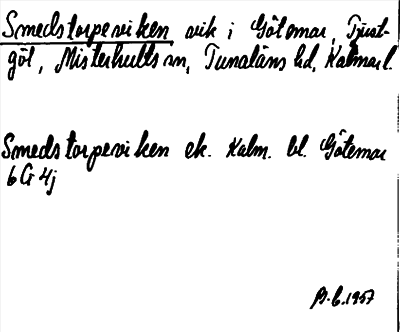 Smedstorpeviken vik i Götemar, Tjust-
göl, Misterhults sn, Tunaläns hd, Kalmar l.
Smedstorpeviken ek. Kalm. bl. Götemar
6 G 4j
B. b. 1957